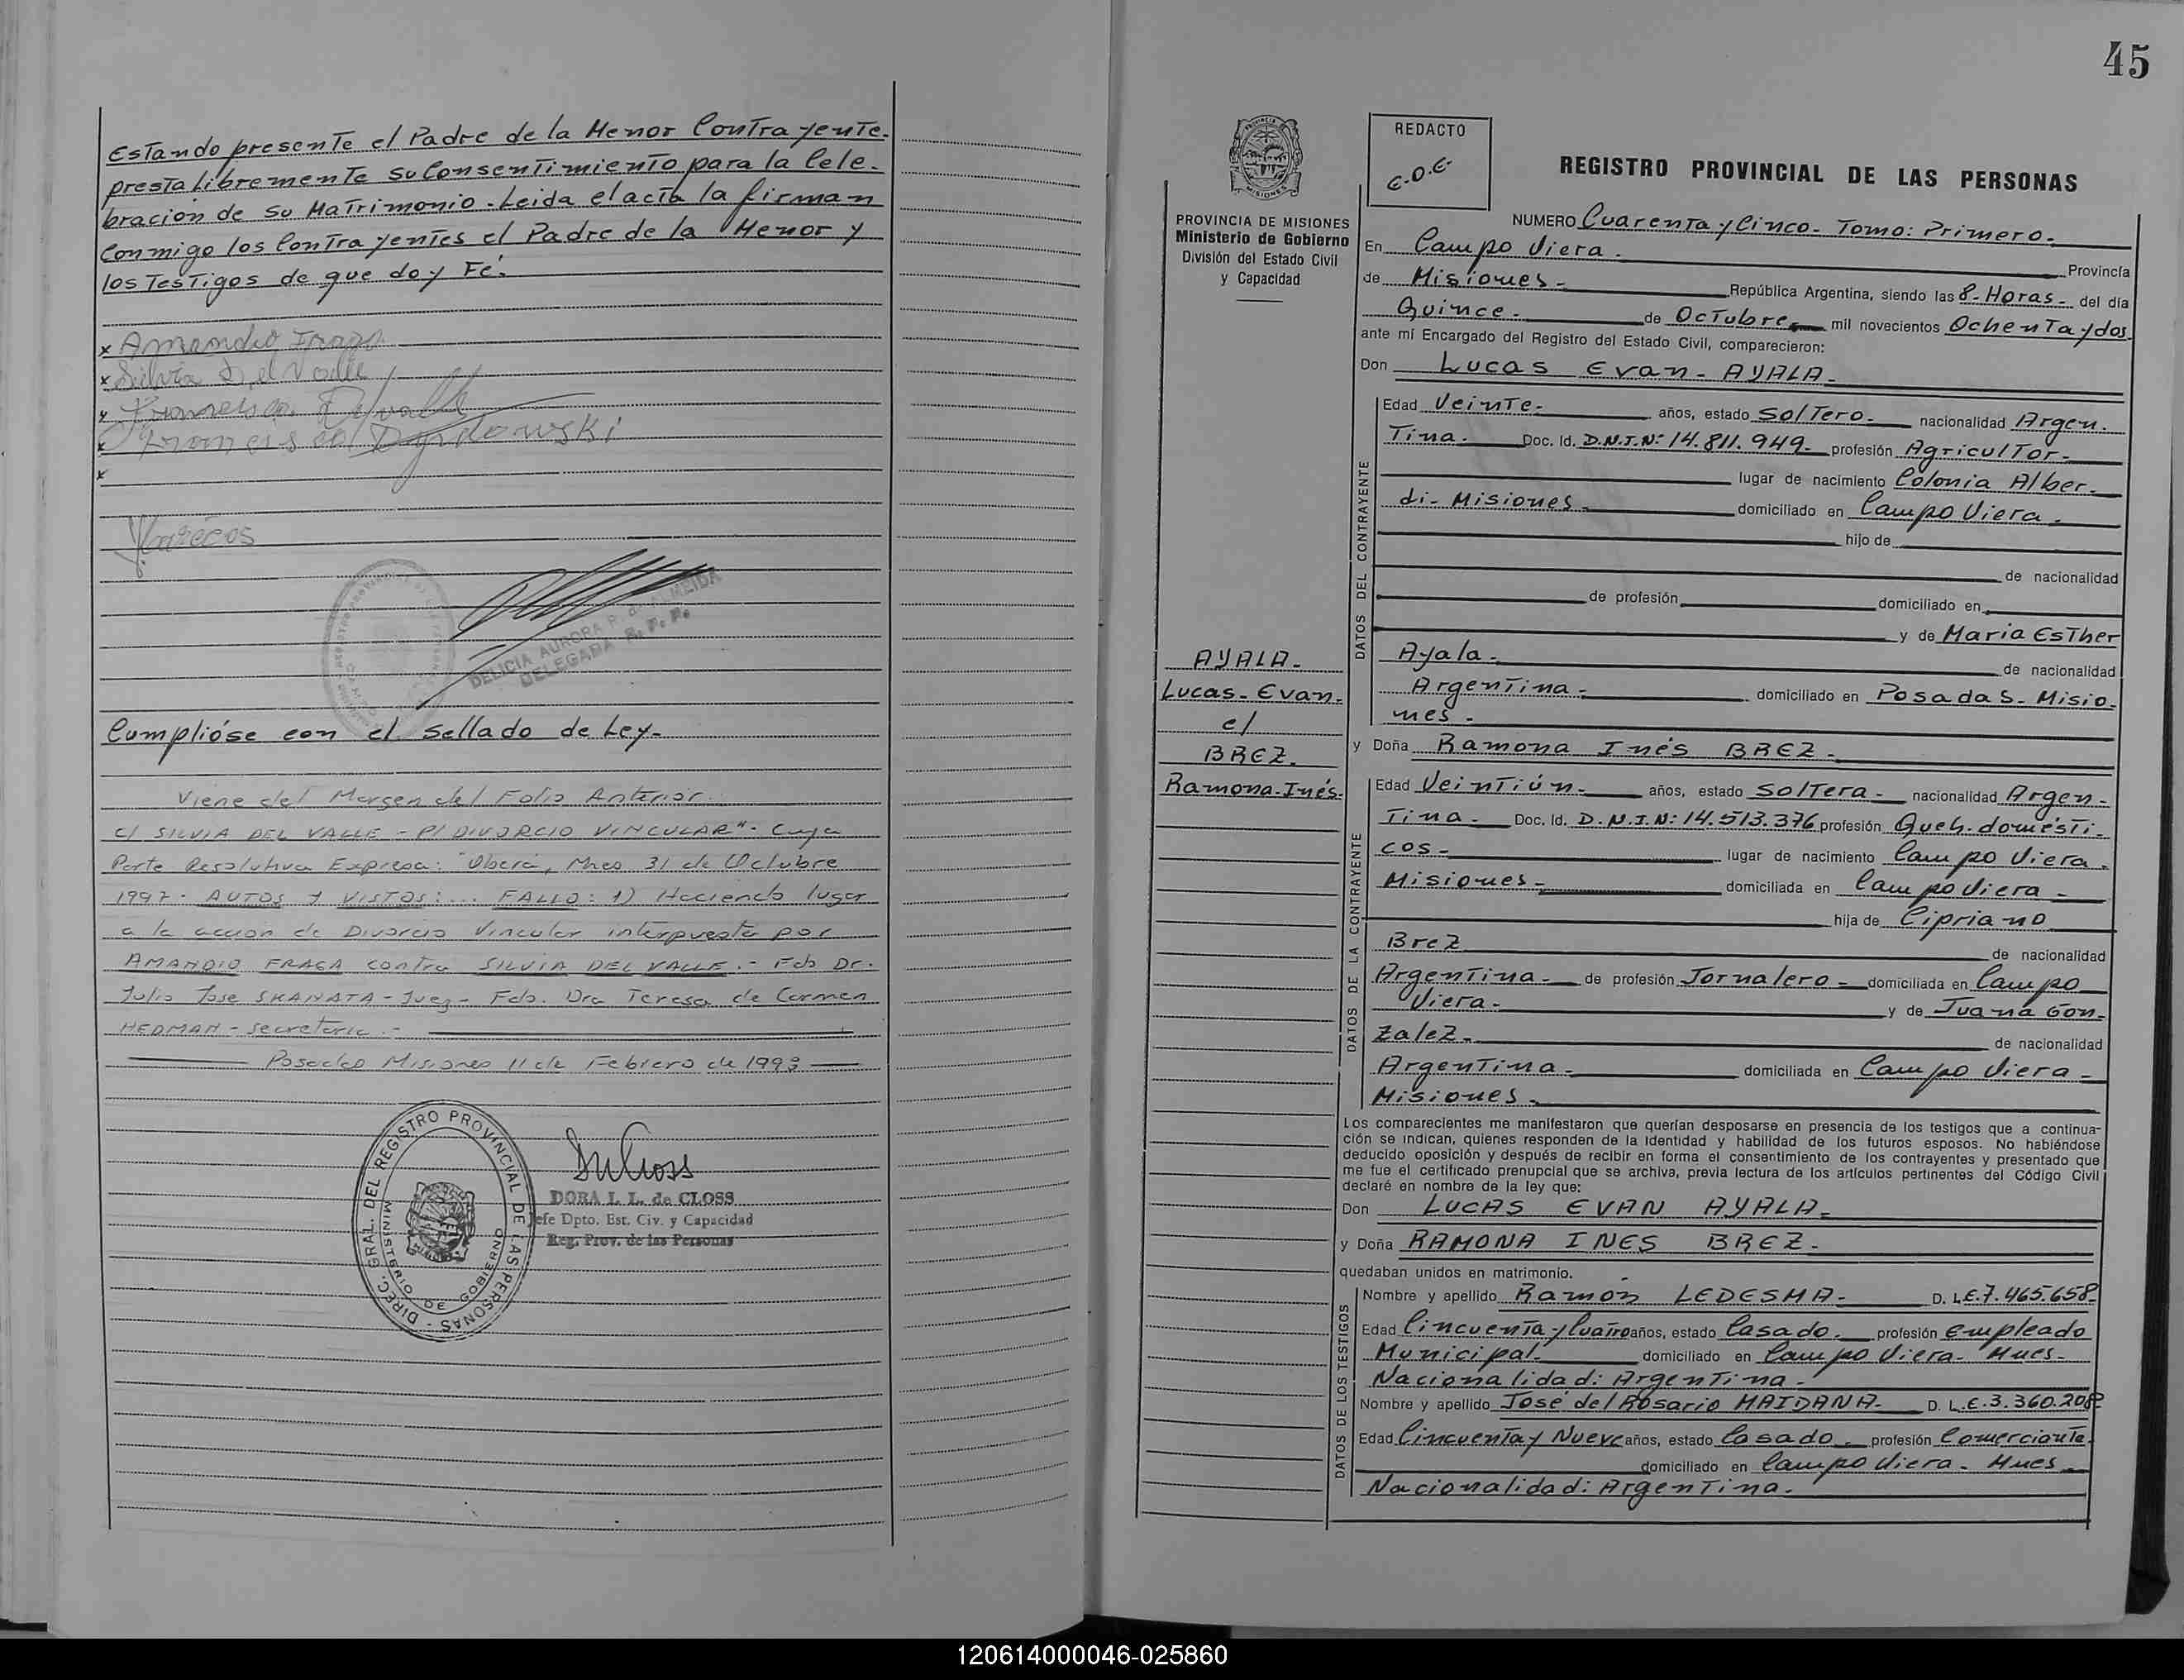 Estando presente el Padre de la Menor Contrayente.
presta libremente su Consentimiento para la Cele-
bración de su Matrimonio. Leida el acta la firman
Conmigo los Contrayentes el Padre de la Menor y
los Testigos de que doy Fé.
x Amandio Fraga
x Silvia Del Valle
x Francisca
x
x
DELICIA AURORA P. d. ALMEIDA
DELEGADA R. P. P.
Cumplióse con el Sellado de Ley-
Viene del Margen del Folio Anterior.
c/ SILVIA DEL VALLE - P/ DIVORCIO VINCULAR". Cuya
Parte Resolutiva Expresa: "Oberá, Mnes 31 de Octubre
1997. AUTOS Y VISTOS: ... FALLO: 1) Haciendo lugar
a la acción de Divorcio Vincular interpuesta por
AMANDIO FRAGA contra SILVIA DEL VALLE.- Fdo Dr.
Julio Jose SKANATA - Juez - Fdo. Dra Teresa de Carmen
HEDMAN - Secretaria.-
Posadas Misiones 11 de Febrero de 1993
DIREC. GRAL. DEL REGISTRO PROVINCIAL DE LAS PERSONAS -
MINISTERIO DE GOBIERNO
DORA I. L. de CLOSS
Jefe Dpto. Est. Civ. y Capacidad
Reg. Prov. de las Personas
45
REDACTO
E.O.E.
REGISTRO PROVINCIAL DE LAS PERSONAS
PROVINCIA DE MISIONES
Ministerio de Gobierno
División del Estado Civil
y Capacidad
NUMERO Cuarenta y Cinco. Tomo: Primero.
En Campo Viera. Provincia
de Misiones- República Argentina, siendo las 8- Horas- del día
Quince. de Octubre mil novecientos Ochenta y dos
ante mí Encargado del Registro del Estado Civil, comparecieron:
Don Lucas Evan- AYALA-
DATOS DEL CONTRAYENTE
Edad Veinte- años, estado Soltero- nacionalidad Argen-
tina. Doc. Id. D.N.I.N: 14.811.949- profesión Agricultor-
lugar de nacimiento Colonia Alber-
di- Misiones- domiciliado en Campo Viera.
hijo de
de nacionalidad
de profesión domiciliado en
y de Maria Esther
Ayala- de nacionalidad
Argentina- domiciliado en Posadas- Misio-
nes-
AYALA-
Lucas-Evan-
c/
BREZ.
Ramona-Inés-
y Doña Ramona Inés BREZ-
DATOS DE LA CONTRAYENTE
Edad Veintiún- años, estado Soltera- nacionalidad Argen-
tina- Doc. Id. D.N.I.N: 14.513.376 profesión Queh. domésti-
cos- lugar de nacimiento Campo Viera.
Misiones- domiciliada en Campo Viera-
hija de Cipriano
Brez de nacionalidad
Argentina- de profesión Jornalero- domiciliada en Campo
Viera- y de Juana Gon-
zalez- de nacionalidad
Argentina- domiciliada en Campo Viera-
Misiones-
Los comparecientes me manifestaron que querían desposarse en presencia de los testigos que a continua-
ción se indican, quienes responden de la identidad y habilidad de los futuros esposos. No habiéndose
deducido oposición y después de recibir en forma el consentimiento de los contrayentes y presentado que
me fue el certificado prenupcial que se archiva, previa lectura de los artículos pertinentes del Código Civil
declaré en nombre de la ley que:
Don LUCAS EVAN AYALA-
y Doña RAMONA INES BREZ-
quedaban unidos en matrimonio.
DATOS DE LOS TESTIGOS
Nombre y apellido Ramón LEDESMA- D. L.E.7.465.658-
Edad Cincuenta y Cuatro años, estado Casado. profesión empleado
Municipal- domiciliado en Campo Viera- Mnes-
Nacionalidad: Argentina-
Nombre y apellido José del Rosario MAIDANA- D. L.E.3.360.208
Edad Cincuenta y Nueve años, estado Casado- profesión Comerciante
domiciliado en Campo Viera- Mnes-
Nacionalidad: Argentina.
120614000046-025860